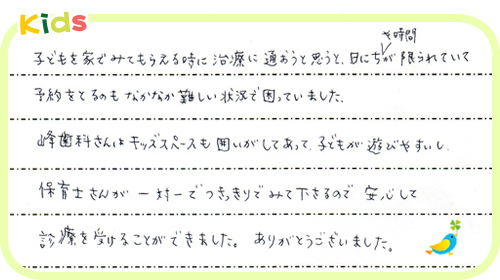 Kids
子どもを家でみてもらえる時に治療に通おうと思うと、日にちや時間が限られていて
予約をとるのもなかなか難しい状況で困っていました。
峰歯科さんはキッズスペースも囲いがしてあって、子どもが遊びやすいし、
保育士さんが一対一でつきっきりでみて下さるので安心して
診療を受けることができました。ありがとうございました。